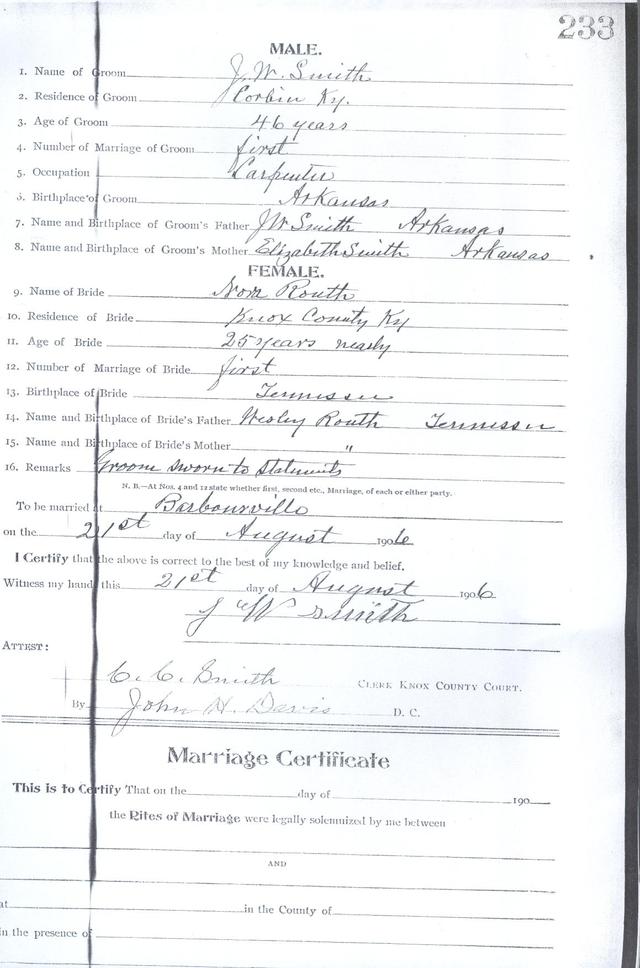 233
MALE.
1. Name of Groom J. W. Smith
2. Residence of Groom Corbin Ky.
3. Age of Groom 46 years
4. Number of Marriage of Groom first
5. Occupation Carpenter
6. Birthplace of Groom Arkansas
7. Name and Birthplace of Groom's Father JW Smith Arkansas
8. Name and Birthplace of Groom's Mother Elizabeth Smith Arkansas
FEMALE.
9. Name of Bride Nora Routh
10. Residence of Bride Knox County Ky
11. Age of Bride 25 years nearly
12. Number of Marriage of Bride first
13. Birthplace of Bride Tennessee
14. Name and Birthplace of Bride's Father Wesley Routh Tennessee
15. Name and Birthplace of Bride's Mother "
16. Remarks Groom sworn to statements
N. B.—At Nos. 4 and 12 state whether first, second etc., Marriage, of each or either party.
To be married at Barbourville
on the 21st day of August 1906
I Certify that the above is correct to the best of my knowledge and belief.
Witness my hand this 21st day of August 1906
J W Smith
ATTEST:
C. C. Smith CLERK KNOX COUNTY COURT.
By John H. Davis D. C.
Marriage Certificate
This is to Certify That on the day of 190
the Rites of Marriage were legally solemnized by me between
AND
at in the County of
in the presence of